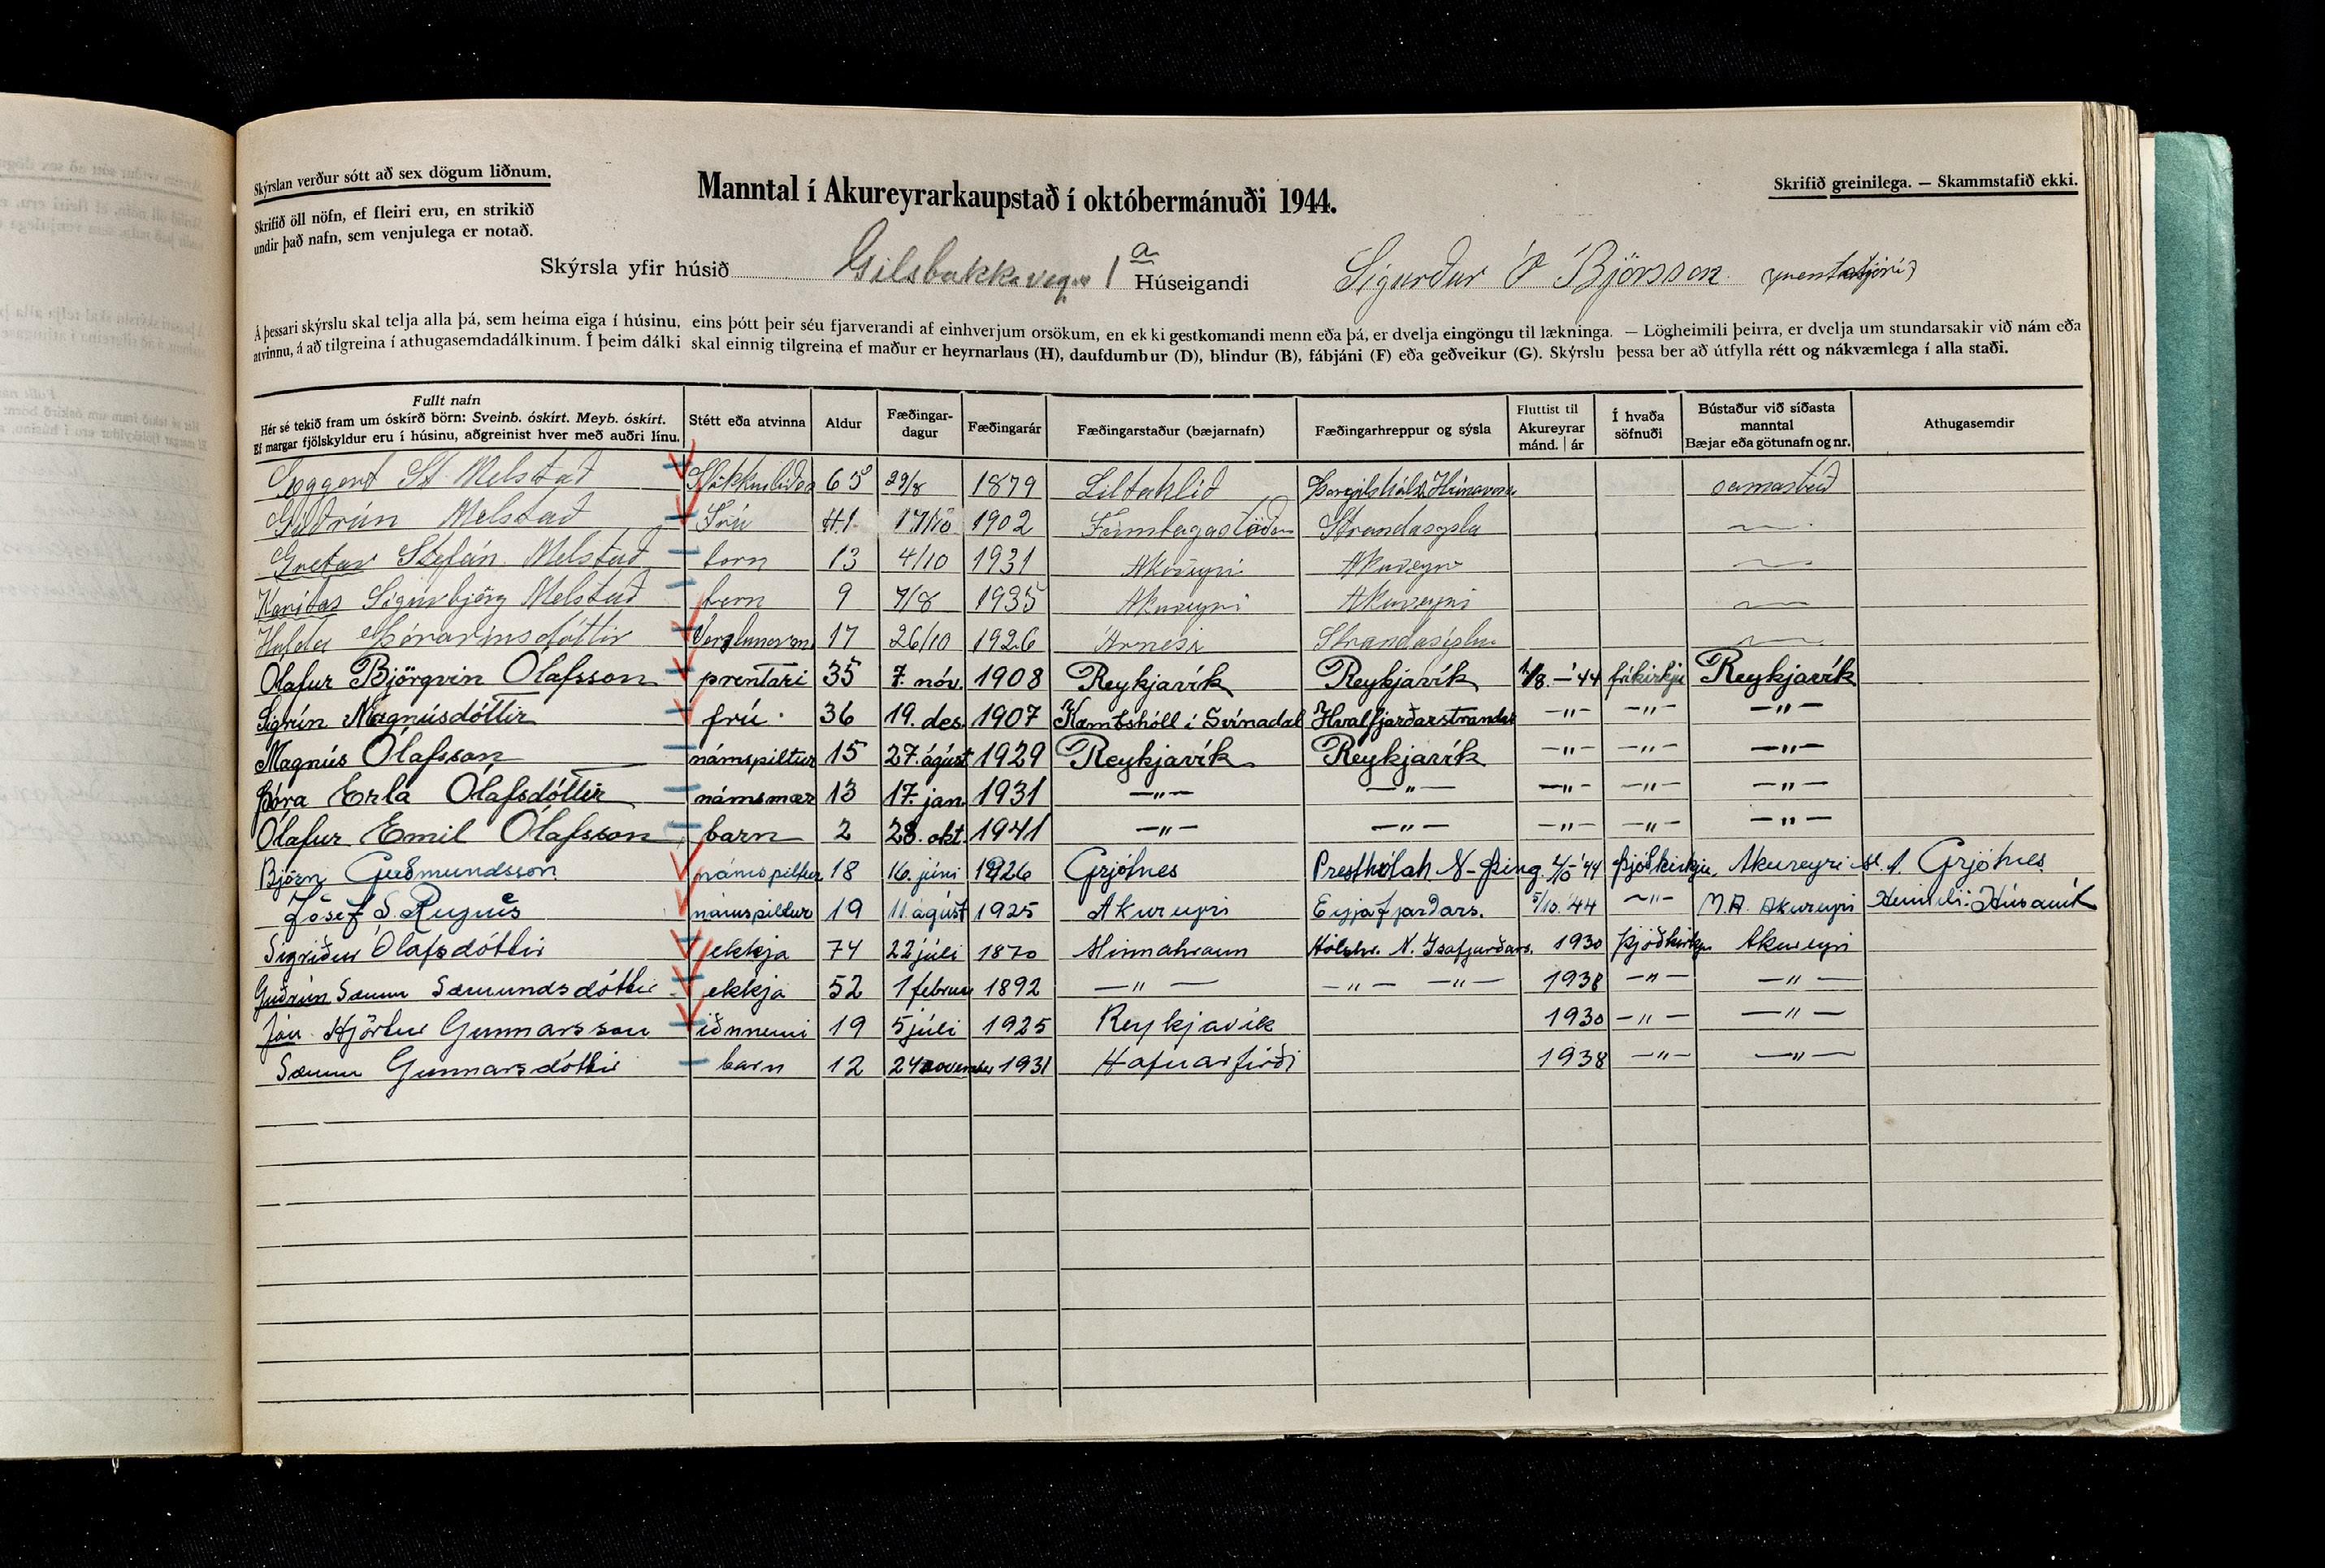 Skýrslan verður sótt að sex dögum liðnum.
Skrifið öll nöfn, ef fleiri eru, en strikið
undir það nafn, sem venjulega er notað.
Manntal í Akureyrarkaupstað í októbermánuði 1944.
Skrifið greinilega. — Skammstafið ekki.
Skýrsla yfir húsið Gilsbakkavegur 1 a Húseigandi Sigurður O Björnsson
Á þessari skýrslu skal telja alla þá, sem heima eiga í húsinu, eins þótt þeir séu fjarverandi af einhverjum orsökum, en ekki gestkomandi menn eða þá, er dvelja eingöngu til lækninga. — Lögheimili þeirra, er dvelja um stundarsakir við nám eða
atvinnu, á að tilgreina í athugasemdadálkinum. Í þeim dálki skal einnig tilgreina ef maður er heyrnarlaus (H), daufdumbur (D), blindur (B), fábjáni (F) eða geðveikur (G). Skýrslu þessa ber að útfylla rétt og nákvæmlega í alla staði.
Fullt nafn
Hér sé tekið fram um óskírð börn: Sveinb. óskírt. Meyb. óskírt.
Ef margar fjölskyldur eru í húsinu, aðgreinist hver með auðri línu.
Stétt eða atvinna
Aldur
Fæðingar-
dagur
Fæðingarár
Fæðingarstaður (bæjarnafn)
Fæðingarhreppur og sýsla
Fluttist til
Akureyrar
mánd. | ár
Í hvaða
söfnuði
Bústaður við síðasta
manntal
Bæjar eða götunafn og nr.
Athugasemdir
Eggert St. Melstað 65 29/8 1879 Litluhlið samastað
Guðrún Melstað Frú 41 17/10 1902 Strandasysla
Gretar Stefán Melstað born 13 4/10 1931 Akureyri Akureyri
Karitas Sigurbjörg Melstað born 9 7/8 1935 Akureyri Akureyri
Hulda Þórarinsdóttir 17 26/10 1926 Árnesi Strandasýslu
Ólafur Björgvin Ólafsson prentari 35 7. nóv. 1908 Reykjavík Reykjavík 1/8.-'44 fríkirkju Reykjavík
Sigrún Magnúsdóttir frú 36 19. des. 1907 Kambshóll í Svínadal Hvalfjarðarstrandar —"— —"— —"—
Magnús Ólafsson námspiltur 15 27. ágúst 1929 Reykjavík Reykjavík —"— —"— —"—
Þóra Erla Ólafsdóttir námsmær 13 17. jan. 1931 —"— —"— —"— —"— —"—
Ólafur Emil Ólafsson barn 2 28. okt. 1941 —"— —"— —"— —"— —"—
Björn Guðmundsson námspiltur 18 16. júní 1926 Grjótnes Presthólah N-Þing. '44 Þjóðkirkju. Akureyri M.A. Grjótnes
Jósef S. Reynis námspiltur 19 11. ágúst 1925 Akureyri Eyjafjarðars. 5/10.'44 —"— M.A. Akureyri Heimili: Húsavík
Sigríður Ólafsdóttir ekkja 74 22 júlí 1870 Minnahraun Hólshr. N. Isafjarðars. 1930 Þjóðkirkju Akureyri
Guðrún Sæunn Sæmundsdóttir ekkja 52 1 febrúar 1892 —"— —"— —"— 1938 —"— —"—
Jón Hjörtur Gunnarsson iðnnemi 19 5 júlí 1925 Reykjavík 1930 —"— —"—
Sæunn Gunnarsdóttir barn 12 24 november 1931 Hafnarfirði 1938 —"— —"—